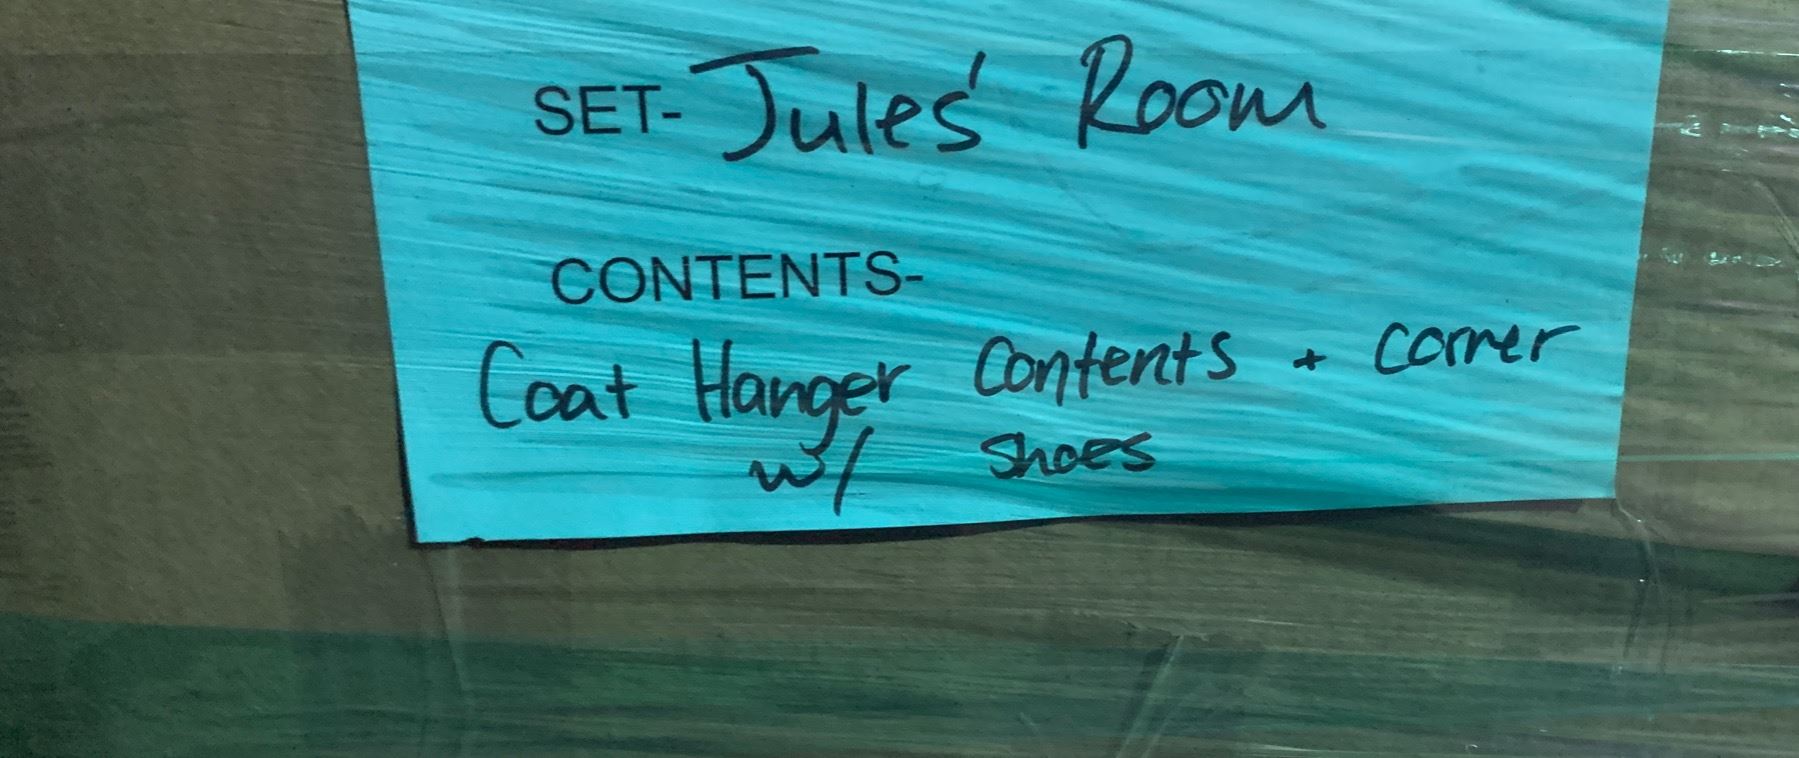 SET- Jules' Room
CONTENTS-
Coat Hanger Contents + corner
w/ shoes